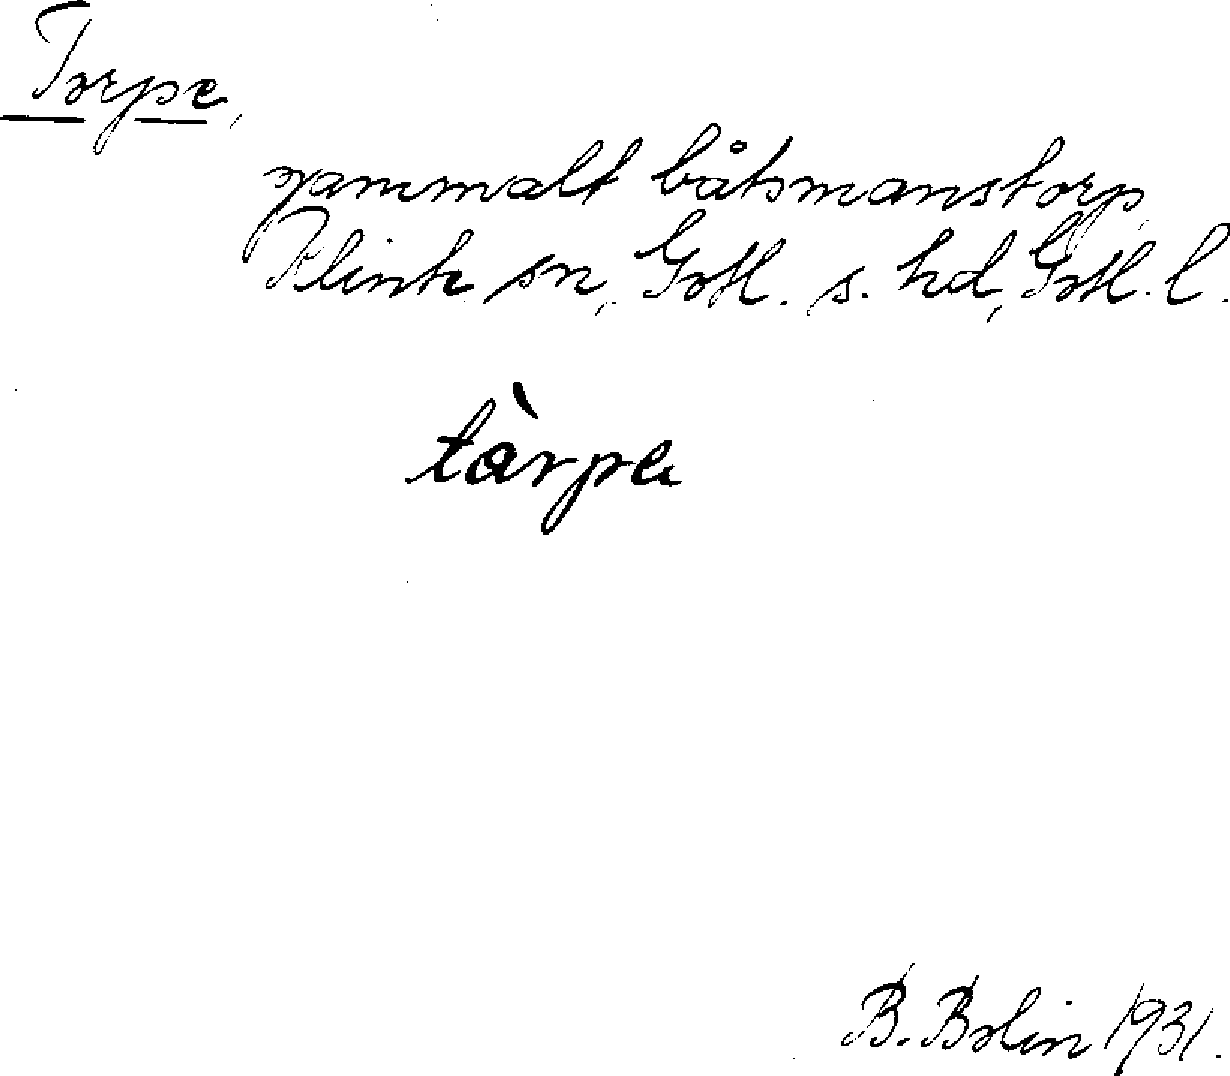 Torpe,
gammalt båtsmanstorp,
Klinte sn, Gotl. s. hd, Gotl. l.
tàrpe
B. Bolin 1931.